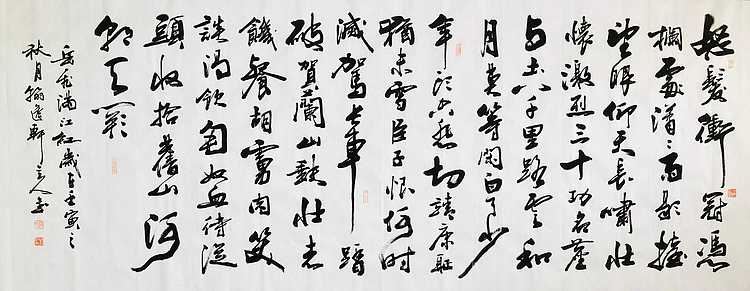 怒髮衝冠憑
欄處瀟〻雨歇擡
望眼仰天長嘯壯
懷激烈三十功名塵
与土八千里路雲和
月莫等閒白了少
年頭空悲切靖康恥
猶未雪臣子恨何時
滅駕長車踏
破賀蘭山缺壯志
饑餐胡虜肉笑
談渴飲匈奴血待從
頭收拾舊山河
朝天闕
岳飛滿江紅歲在壬寅之
秋月翰逸軒主人書